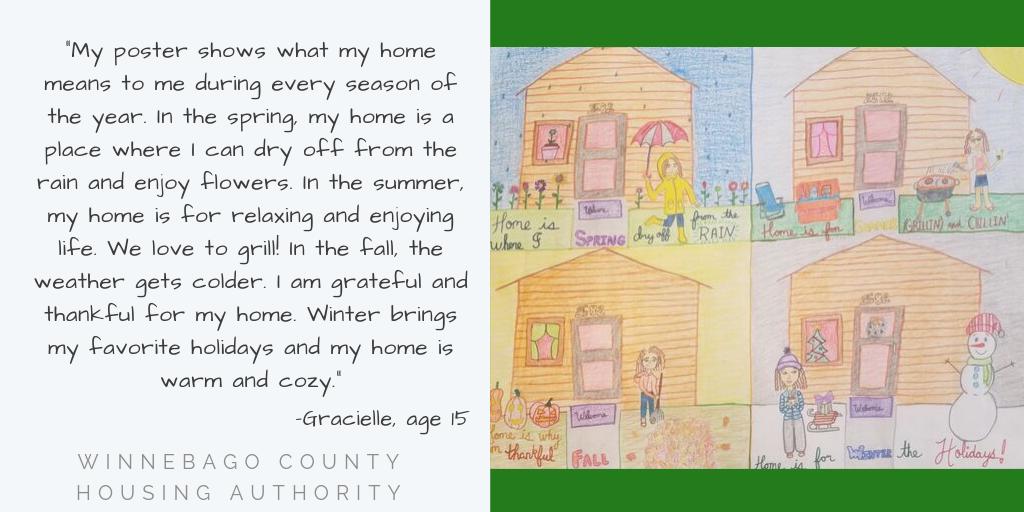 "My poster shows what my home
means to me during every season of
the year. In the spring, my home is a
place where I can dry off from the
rain and enjoy flowers. In the summer,
my home is for relaxing and enjoying
life. We love to grill! In the fall, the
weather gets colder. I am grateful and
thankful for my home. Winter brings
my favorite holidays and my home is
warm and cozy."
-Gracielle, age 15
WINNEBAGO COUNTY
HOUSING AUTHORITY
Welcome
Home is
where I
SPRING
dry off
from the
RAIN
Welcome
Home is for
SUMMER
GRILLIN' and CHILLIN'
Welcome
Home is why
thankful
FALL
Welcome
Home is for
WINTER
the
Holidays!